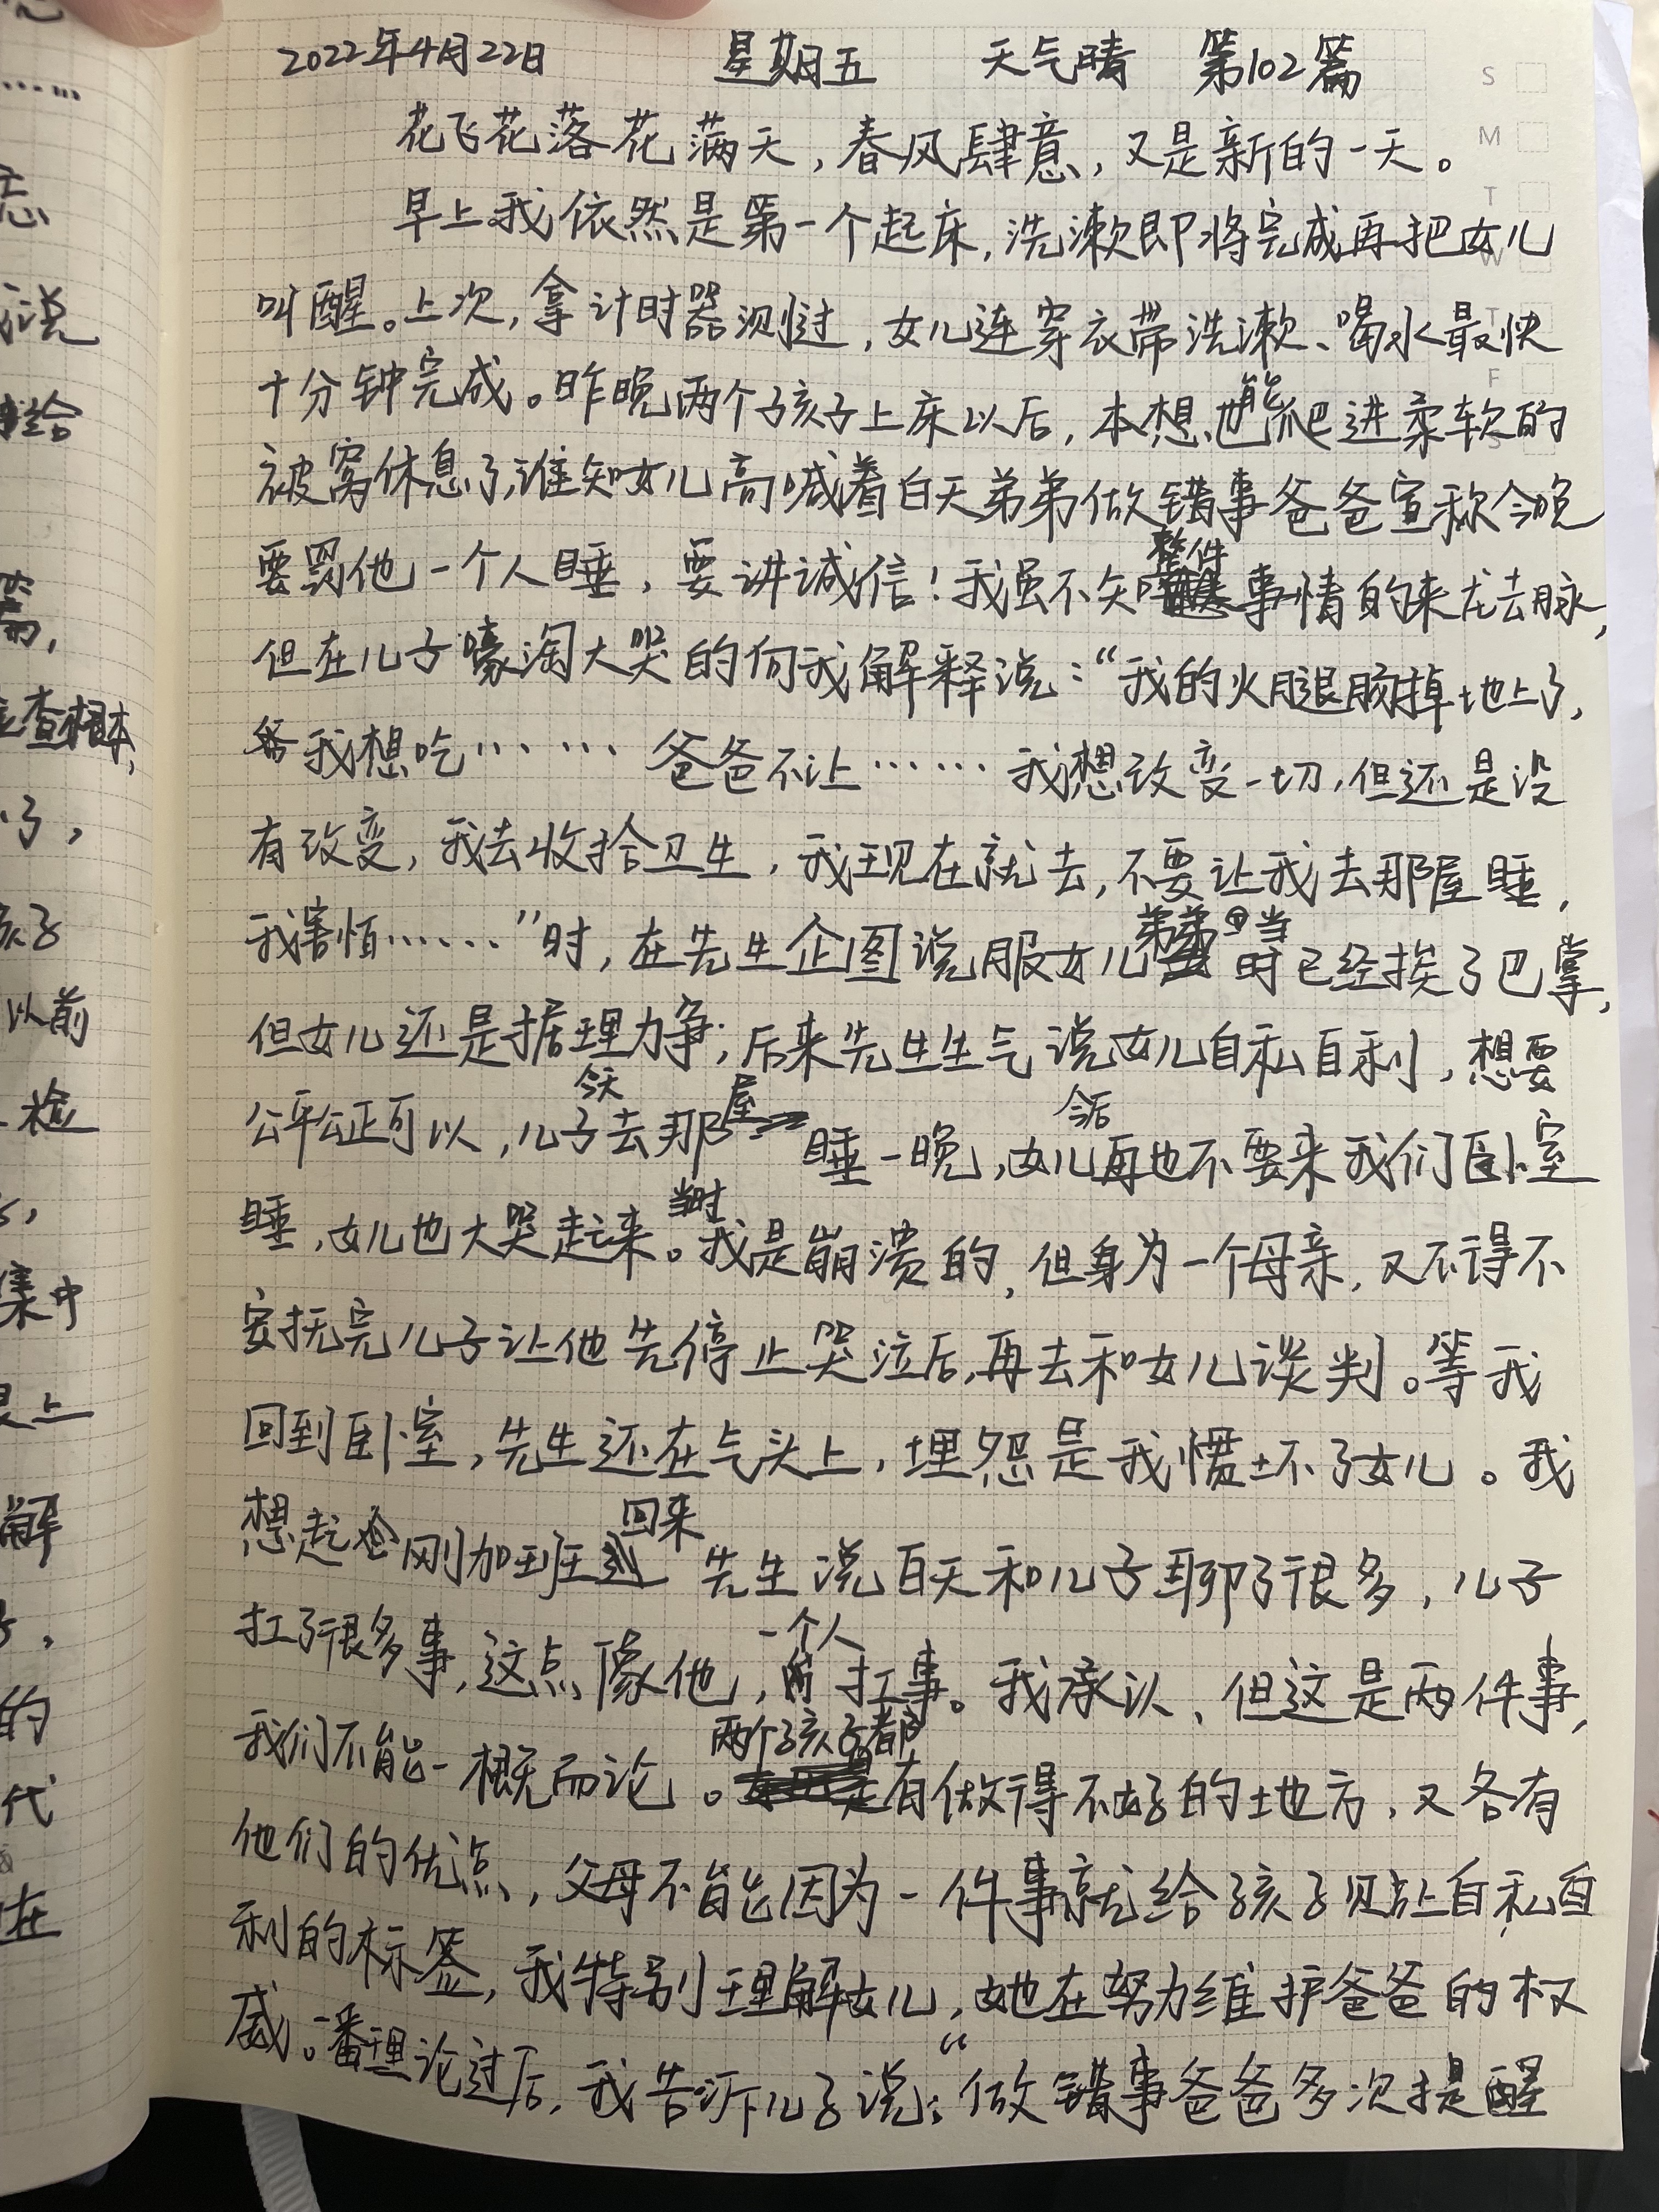 2022年4月22日 星期五 天气晴 第102篇
花飞花落花满天，春风肆意，又是新的一天。
早上我依然是第一个起床，洗漱即将完成再把女儿
叫醒。上次，拿计时器测过，女儿连穿衣带洗漱、喝水最快
十分钟完成。昨晚两个孩子上床以后，本想也能爬进柔软的
被窝休息了，谁知女儿高喊着白天弟弟做错事爸爸宣称今晚
要罚他一个人睡，要讲诚信！我虽不知整件事情的来龙去脉，
但在儿子嚎淘大哭的向我解释说：“我的火腿肠掉地上了，
我想吃…… 爸爸不让…… 我想改变一切，但还是没
有改变，我去收拾卫生，我现在就去，不要让我去那屋睡，
我害怕……”时，在先生企图说服女儿弟弟当时已经挨了巴掌，
但女儿还是据理力争；后来先生生气说女儿自私自利，想要
公平公正可以，儿子今天去那屋睡一晚，女儿今后再也不要来我们卧室
睡，女儿也大哭起来。当时我是崩溃的，但身为一个母亲，又不得不
安抚完儿子让他先停止哭泣后，再去和女儿谈判。等我
回到卧室，先生还在气头上，埋怨是我惯坏了女儿。我
想起刚加班回来先生说白天和儿子聊了很多，儿子
扛了很多事，这点像他，一个人扛事。我承认，但这是两件事，
我们不能一概而论。两个孩子都有做得不好的地方，又各有
他们的优点，父母不能因为一件事就给孩子贴上自私自
利的标签，我特别理解女儿，她在努力维护爸爸的权
威。一番理论过后，我告诉儿子说：“做错事爸爸多次提醒
S
M
T
W
T
F
S
忘
说
给
篇，
查根本，
了，
孩子
以前
检
集中
是上
解
，
的
代
在